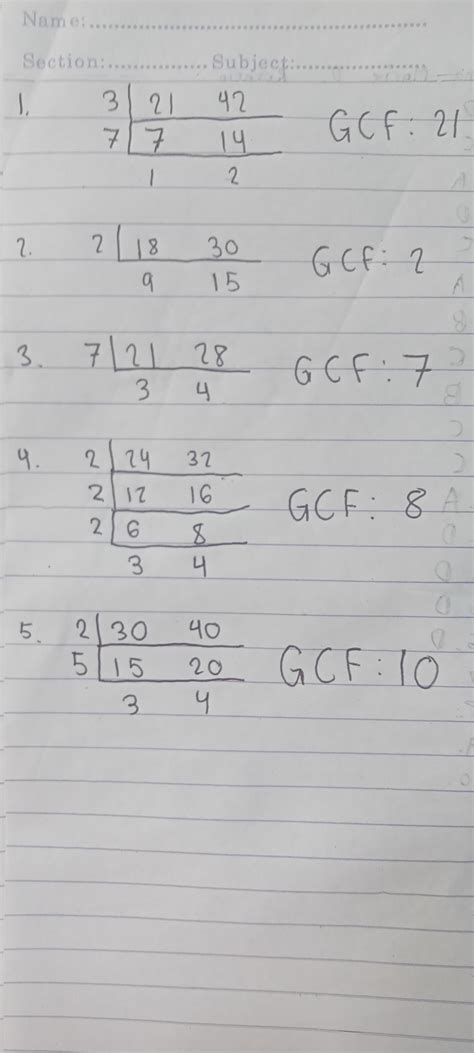 Name:
Section: Subject:
1. 3 21 42 GCF: 21
7 7 14
1 2
2. 2 18 30 GCF: 2
9 15
3. 7 21 28 GCF: 7
3 4
4. 2 24 32
2 12 16 GCF: 8
2 6 8
3 4
5. 2 30 40
5 15 20 GCF: 10
3 4